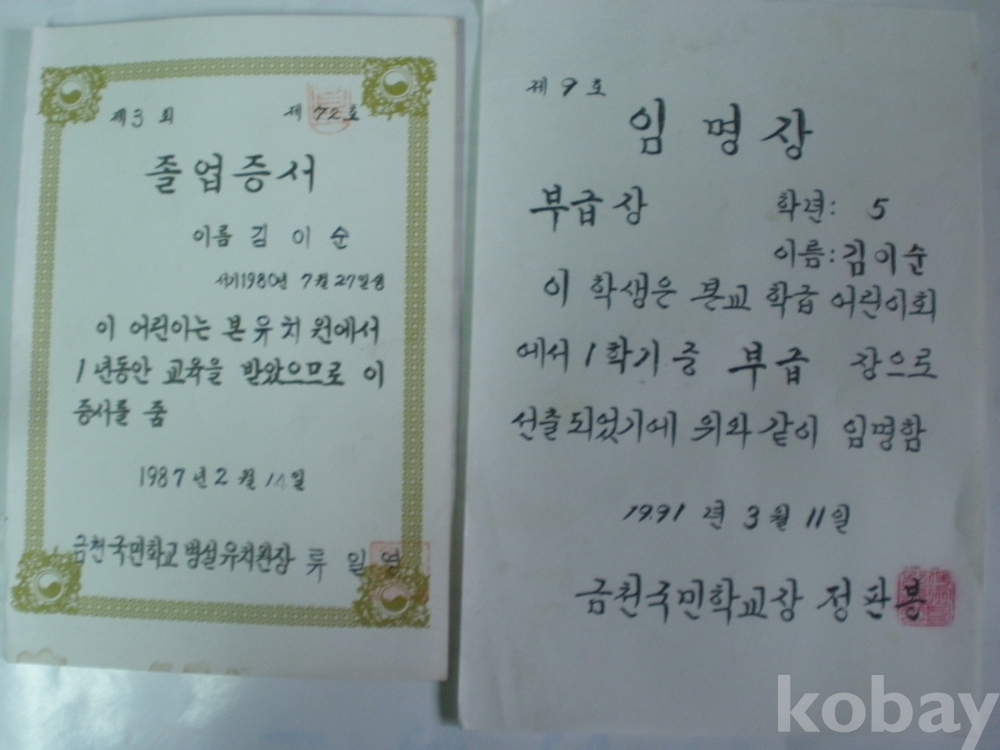 제3회 제72호
졸업증서
이름 김이순
서기1980년 7월27일생
이 어린이는 본 유치원에서
1년동안 교육을 받았으므로 이
증서를 줌
1987년 2월 일
금천국민학교 병설유치원장 류일영
제 9 호
임명장
부급장 학년: 5
이름:김이순
이 학생은 본교 학급 어린이회
에서 1학기 중 부급 장으로
선출되었기에 위와 같이 임명함
1991 년 3월 11일
금천국민학교장 정판봉
kobay